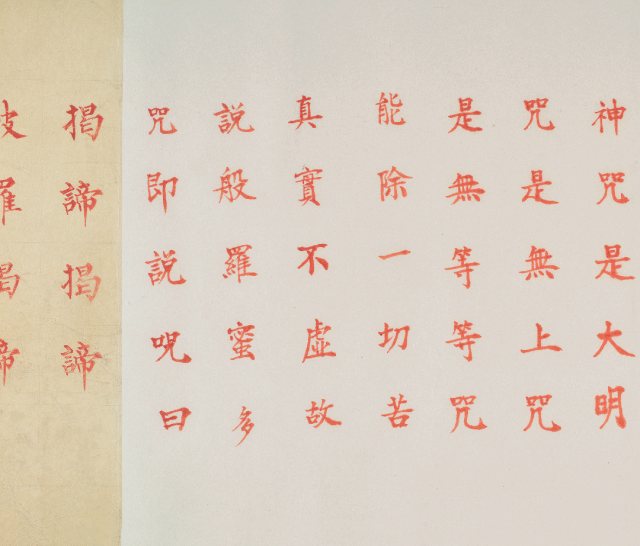 神咒是大明
咒是無上咒
是無等等咒
能除一切苦
真實不虛故
説般羅蜜多
咒即説呪曰
揭諦揭諦
波羅揭諦